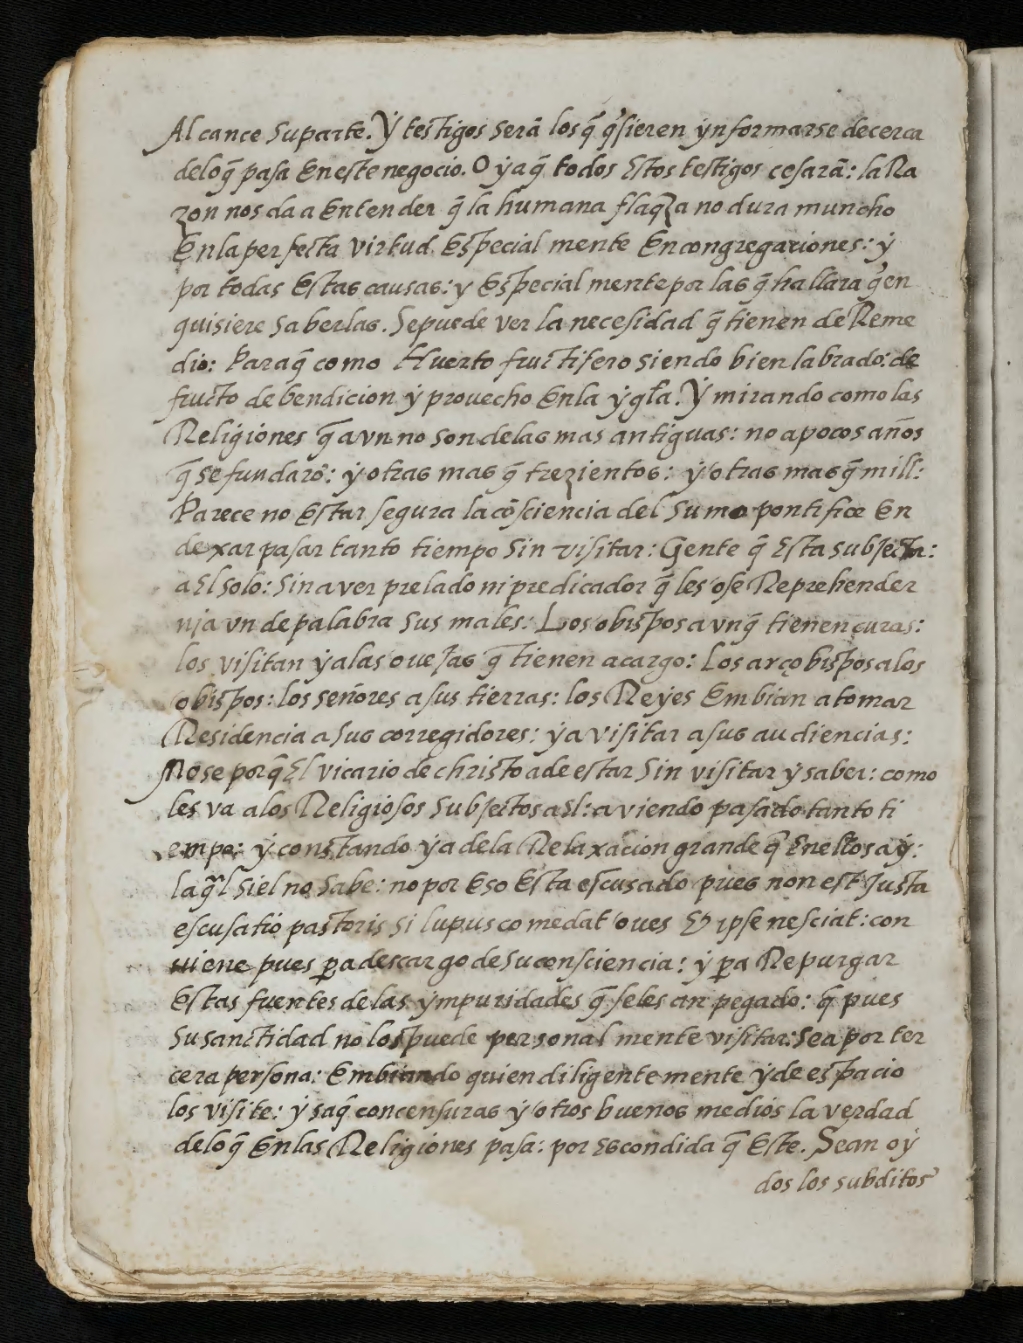 Alcance su parte. Y testigos será los q̃ q̃sieren ynformarse de cerca
delo q̃ pasa en este negocio. O ya q̃ todos estos testigos cesarã: la Ra
zon nos da a entender q̃ la humana flaq̃za no dura muncho
en la perfecta virtud. especial mente en congregaciones: y
por todas estas causas: y especial mente por las q̃ hallara q̃en
quisiere saberlas. Se puede ver la necesidad q̃ tienen de Reme
dio: Para q̃ como Huerto fructifero siendo bien labrado: de
fructo de bendicion y provecho en la ygl̃a. Y mirando como las
Religiones q̃ aun no son delas mas antiguas: no a pocos años
q̃ se fundarõ: y otras mas q̃ trezientos: y otras mas q̃ mill:
Parece no estar segura la cõsciencia del sumo pontifice en
dexar pasar tanto tiempo sin visitar: Gente q̃ esta subjecta:
a el solo: sin aver prelado ni predicador q̃ les ose Reprehender
ni aun de palabra sus males: Los obispos aunq̃ tienen curas:
los visitan y a las ovejas q̃ tienen a cargo: Los arçobispos a los
obispos: los señores a sus tierras: los Reyes embian a tomar
Residencia a sus corregidores: y a visitar a sus audiencias:
No se porq̃ el vicario de christo a de estar sin visitar y saber: como
les va a los Religiosos subjectos a el: aviendo pasado tanto ti
empo: y constando ya dela Relaxacion grande q̃ en ellos ay:
la q̃l si el no sabe: no por eso esta escusado pues non est justa
escusatio pastoris si lupus comedat oves & ipse nesciat: con
viene pues p̃a descargo de su consciencia: y p̃a Repurgar
estas fuentes de las ympuridades q̃ se les an pegado: q̃ pues
su sanctidad no los puede personal mente visitar: sea por ter
cera persona: embiando quien diligentemente y de espacio
los visite: y saq̃ con censuras y otros buenos medios la verdad
delo q̃ en las Religiones pasa: por escondida q̃ este. Sean oy
dos los subditos